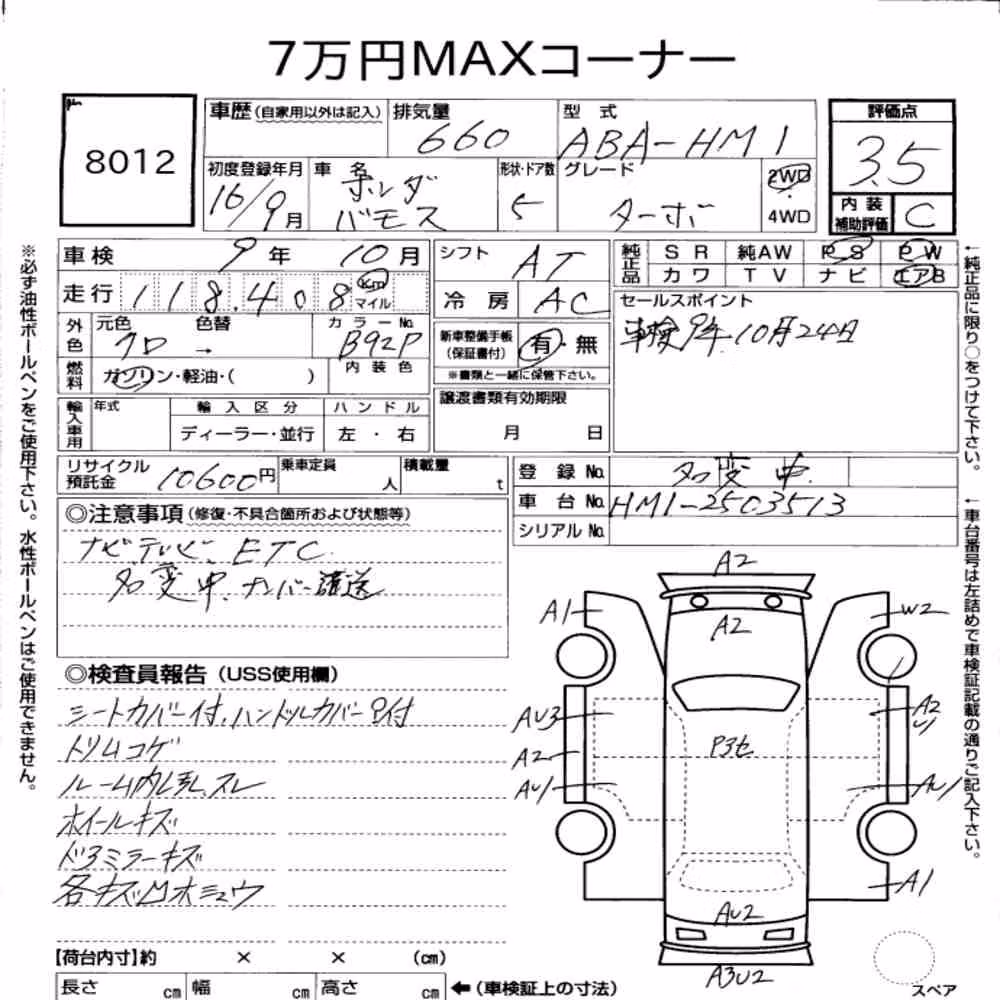 7万円MAXコーナー
8012
車歴(自家用以外は記入) 排気量 660 型式 ABA-HM1 評価点 3.5
初度登録年月 16/9月 車名 ホンダ バモス 形状・ドア数 5 グレード ターボ 2WD 4WD
内装補助評価 C
車検 9年 10月 シフト AT 純正品 SR 純AW PS PW
カワ TV ナビ エアB
走行 118.408 Km マイル 冷房 AC
セールスポイント
車検9年10月24日
外色 元色 クロ 色替 → カラーNo. B92P
新車整備手帳(保証書付) 有・無
※書類と一緒に保管下さい。
燃料 ガソリン・軽油・( ) 内装色
譲渡書類有効期限
月 日
輸入車用 年式 輸入区分 ハンドル
ディーラー・並行 左・右
リサイクル預託金 10600円 乗車定員 人 積載量 t
登録No. 名変中
車台No. HM1-2503513
シリアルNo.
◎注意事項(修復・不具合箇所および状態等)
ナビ テレビ ETC
名変中.ナンバー後送
◎検査員報告(USS使用欄)
シートカバー付.ハンドルカバー付
トリムコゲ
ルーム内ヨゴレ.スレ
ホイールキズ
ドアミラーキズ
各キズ凹ホシュウ
A2
A1
W2
A2
AU3
A2
U1
P3セ
A2
AU1
AU1
A1
AU2
A3U2
スペア
【荷台内寸】約 × × (cm)
長さ cm 幅 cm 高さ cm ←(車検証上の寸法)
※必ず油性ボールペンをご使用下さい。水性ボールペンはご使用できません。
←純正品に限り○をつけて下さい。
←車台番号は左詰めで車検証記載の通りご記入下さい。